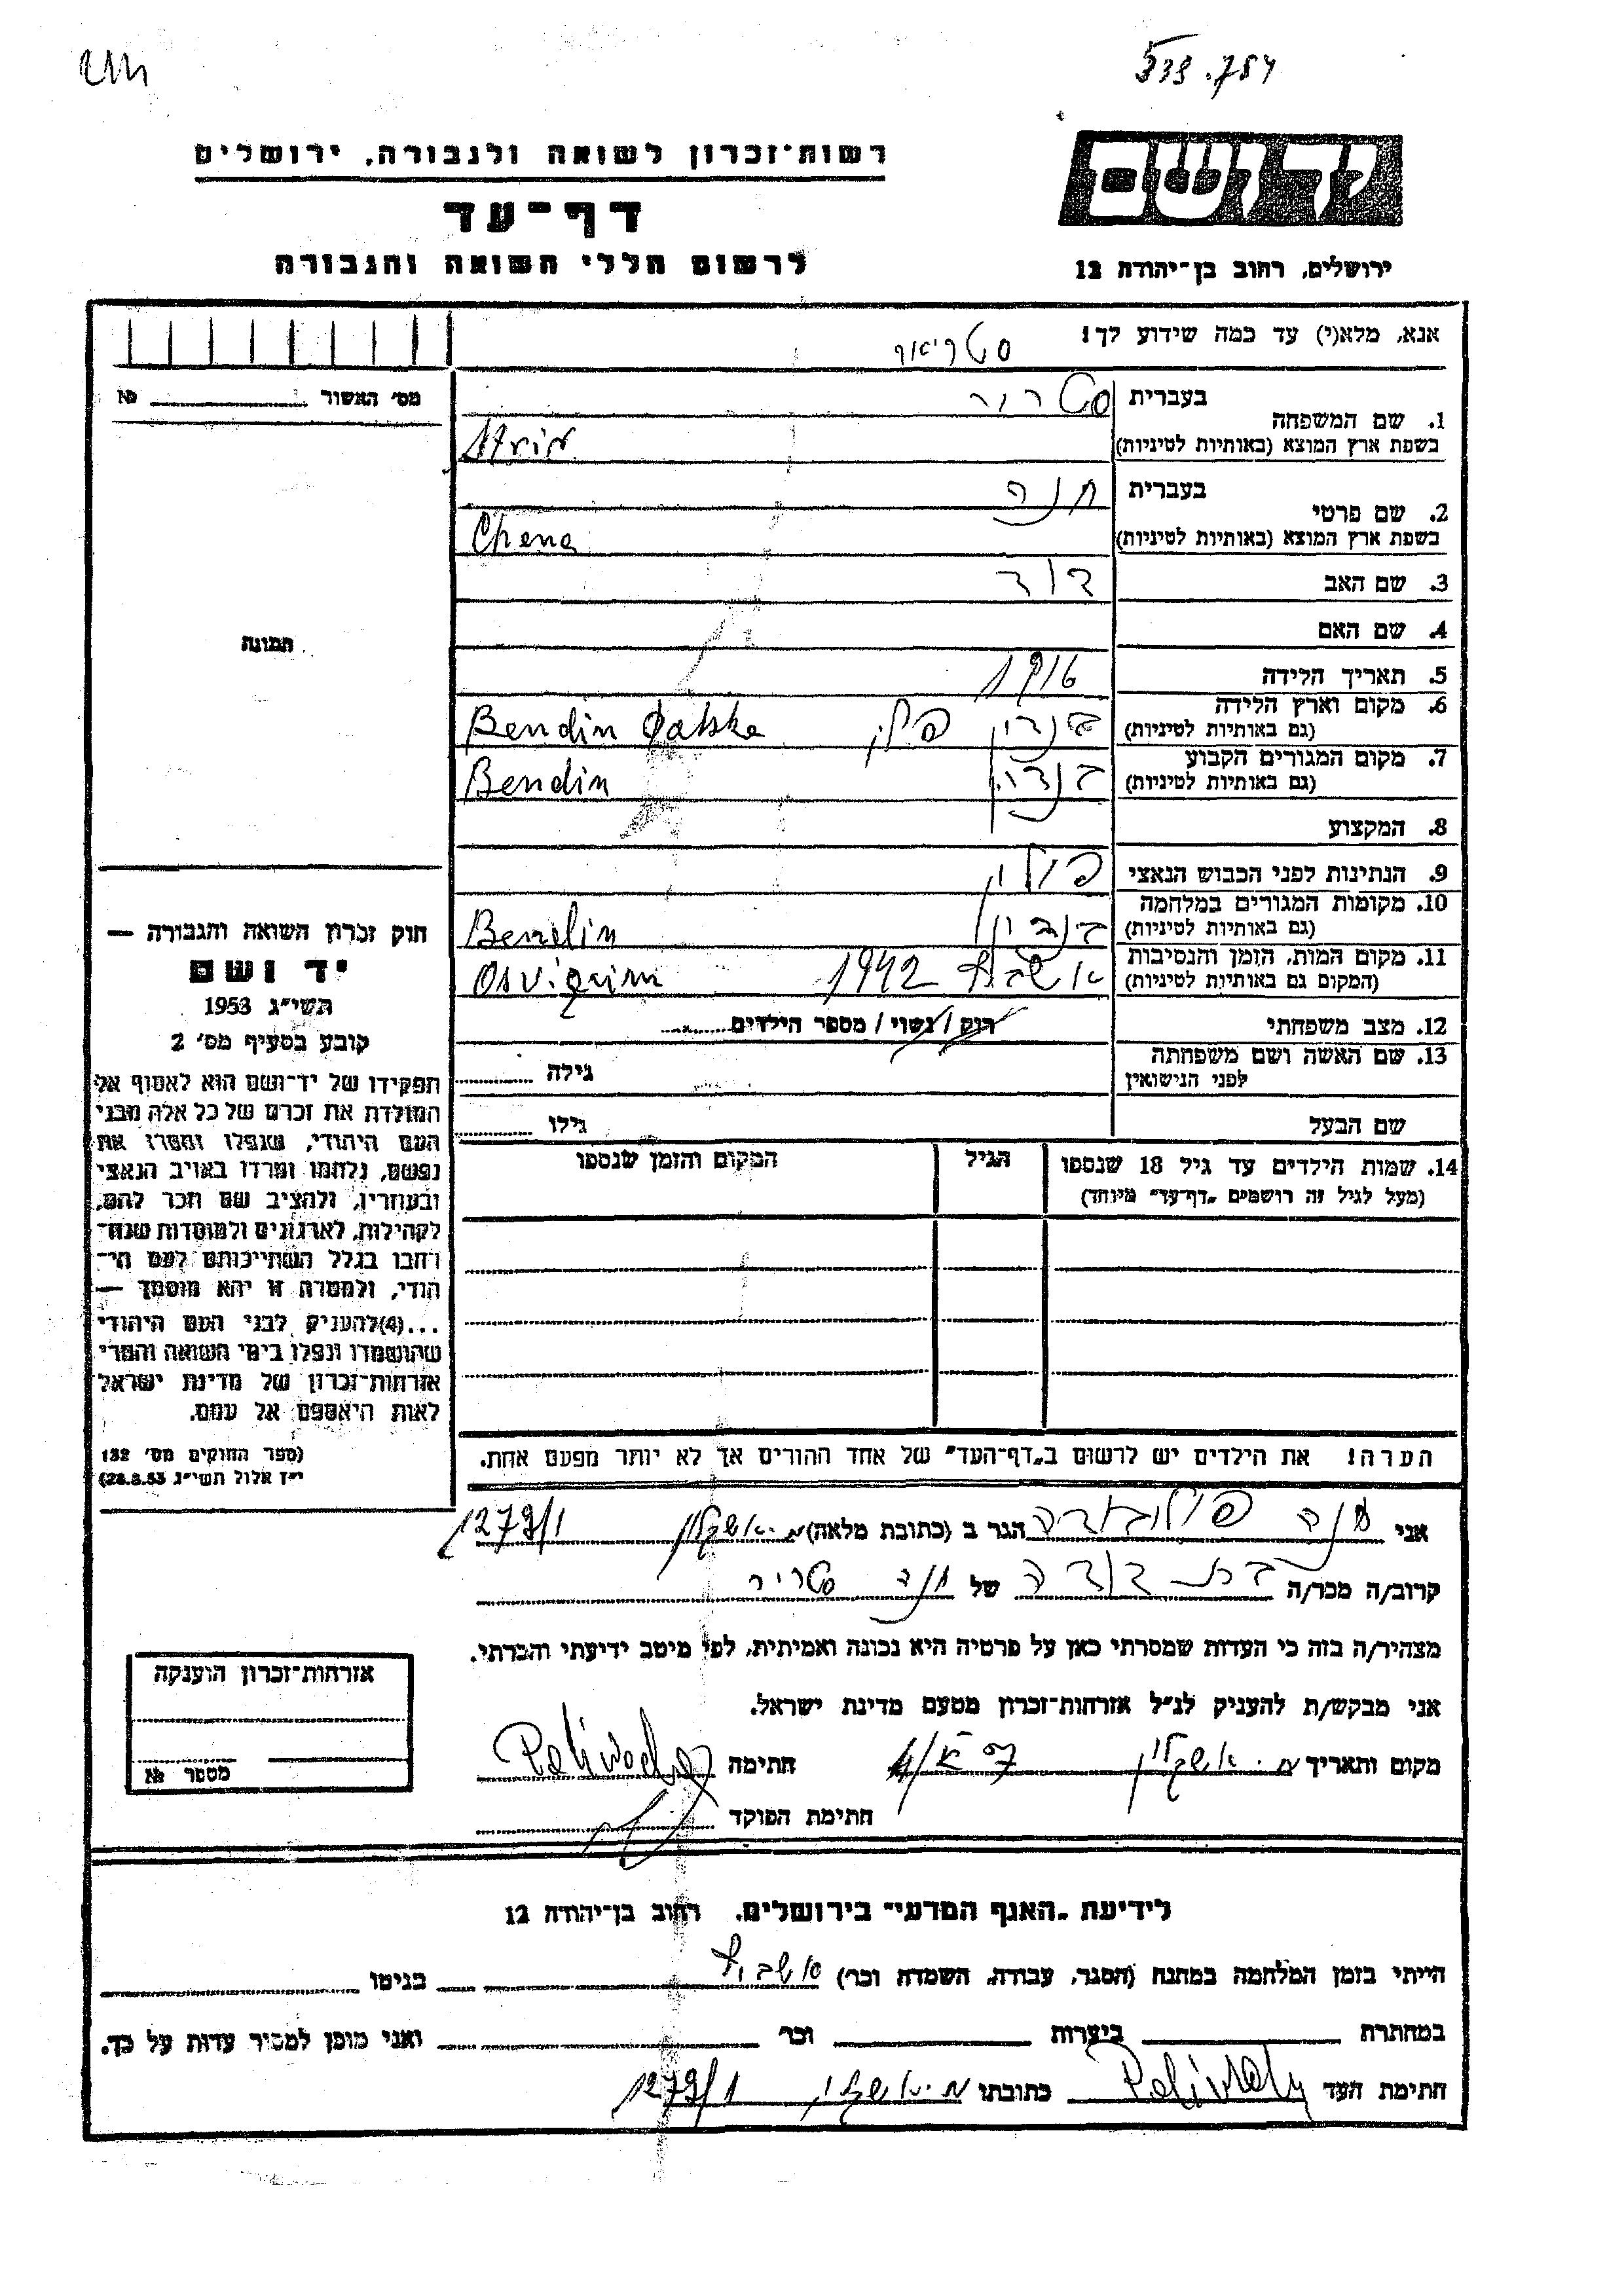 רשות־זכרון לשואה ולגבורה, ירושלים
דף־עד
לרשום חללי השואה והגבורה
יד ושם
ירושלים, רחוב בן־יהודה 12
אנא, מלא(י) עד כמה שידוע לך!
מס׳ האשור
תמונה
1. שם המשפחה
בעברית
בשפת ארץ המוצא (באותיות לטיניות)
2. שם פרטי
בעברית חנה
בשפת ארץ המוצא (באותיות לטיניות) Chena
3. שם האב דוד
4. שם האם
5. תאריך הלידה
6. מקום וארץ הלידה
(גם באותיות לטיניות) בנדין פולין Bendin
7. מקום המגורים הקבוע
(גם באותיות לטיניות) בנדין Bendin
8. המקצוע
9. הנתינות לפני הכבוש הנאצי פולין
10. מקומות המגורים במלחמה
(גם באותיות לטיניות) בנדין Bendin
11. מקום המות, הזמן והנסיבות
(המקום גם באותיות לטיניות) 1942
12. מצב משפחתי רווק / נשוי / מספר הילדים
13. שם האשה ושם משפחתה
לפני הנישואין
גילה
שם הבעל
גילו
14. שמות הילדים עד גיל 18 שנספו
(מעל לגיל זה רושמים „דף־עד״ מיוחד)
הגיל
המקום והזמן שנספו
הערה! את הילדים יש לרשום ב„דף־העד״ של אחד ההורים אך לא יותר מפעם אחת.
חוק זכרון השואה והגבורה —
יד ושם
תשי״ג 1953
קובע בסעיף מס׳ 2
תפקידו של יד־ושם הוא לאסוף אל
המולדת את זכרם של כל אלה מבני
העם היהודי, שנפלו ומסרו את
נפשם, נלחמו ומרדו באויב הנאצי
ובעוזריו, ולהציב שם וזכר להם,
לקהילות, לארגונים ולמוסדות שנח־
רבו בגלל השתייכותם לעם הי־
הודי, ולמטרה זו יהא מוסמך —
...(4)להעניק לבני העם היהודי
שהושמדו ונפלו בימי השואה והמרי
אזרחות־זכרון של מדינת ישראל
לאות היאספם אל עמם.
(ספר החוקים מס׳ 132
י״ז אלול תשי״ג 28.8.53)
אני חנה הגר ב (כתובת מלאה) אשקלון 1273/1
קרוב/ה מכר/ה בת דודה של חנה
מצהיר/ה בזה כי העדות שמסרתי כאן על פרטיה היא נכונה ואמיתית, לפי מיטב ידיעתי והכרתי.
אני מבקש/ת להעניק לנ״ל אזרחות־זכרון מטעם מדינת ישראל.
מקום ותאריך אשקלון חתימה
חתימת הפוקד
אזרחות־זכרון הוענקה
מספר
לידיעת „האגף המדעי״ בירושלים, רחוב בן־יהודה 12
הייתי בזמן המלחמה במחנה (הסגר, עבודה, השמדה וכו׳) בגיטו
במחתרת ביערות וכו׳ ואני מוכן למסור עדות על כך.
חתימת העד כתובתו אשקלון 1273/1